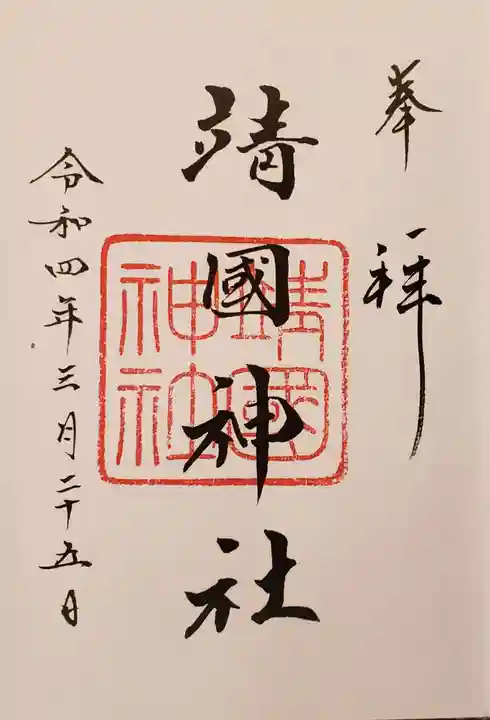 奉拝
靖國神社
靖國神社
令和四年三月二十五日